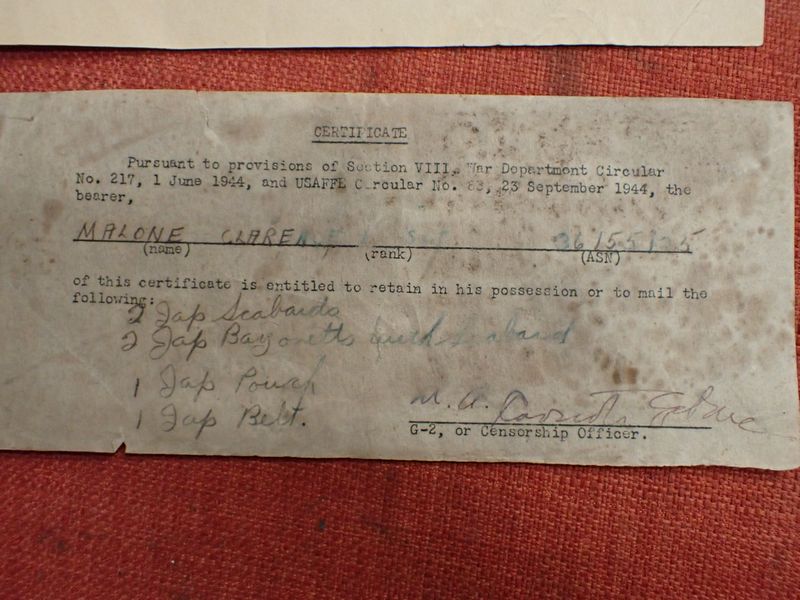 CERTIFICATE
Pursuant to provisions of Section VIII, War Department Circular
No. 217, 1 June 1944, and USAFFE Circular No. 83, 23 September 1944, the
bearer,
MALONE CLAREN 36155125
(name) (rank) (ASN)
of this certificate is entitled to retain in his possession or to mail the
following:
2 Jap Scabards
2 Jap Bayonetts with Scabard
1 Jap Pouch
1 Jap Belt.
M. A.
G-2, or Censorship Officer.